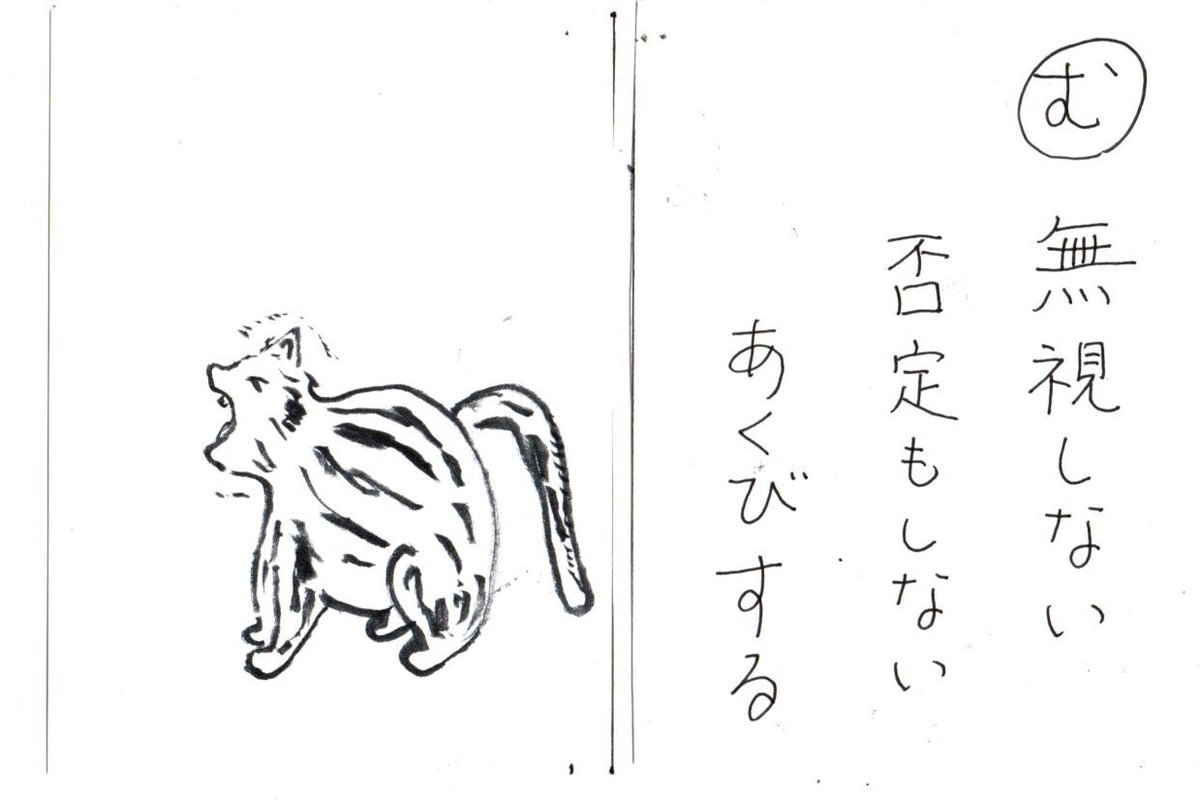 む
無視しない
否定もしない
あくびする